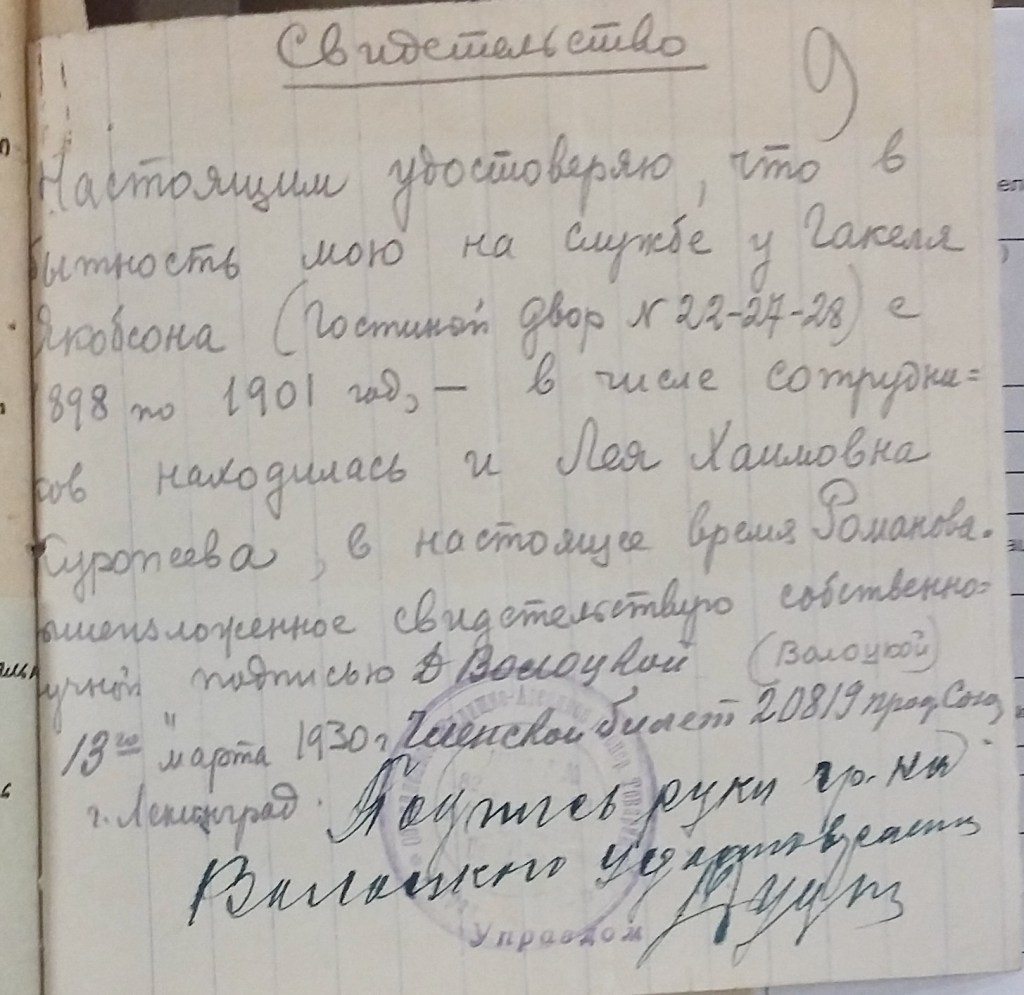 Свидетельство
9
Настоящим удостоверяю, что в
бытность мою на службе у Гакеля
Якобсона (Гостиной двор N 22-27-28) с
1898 по 1901 год, — в числе сотрудни=
ков находилась и Лея Хаимовна
Куропеева, в настоящее время Романова.
вышеизложенное свидетельствую собственно=
ручной подписью Д Волоцкой (Волоцкой)
13го "марта 1930 г Членской билет 20819 проф. Союз
г. Ленинград. Подпись руки гр-на
Волоцкого удостоверяет
Управдом